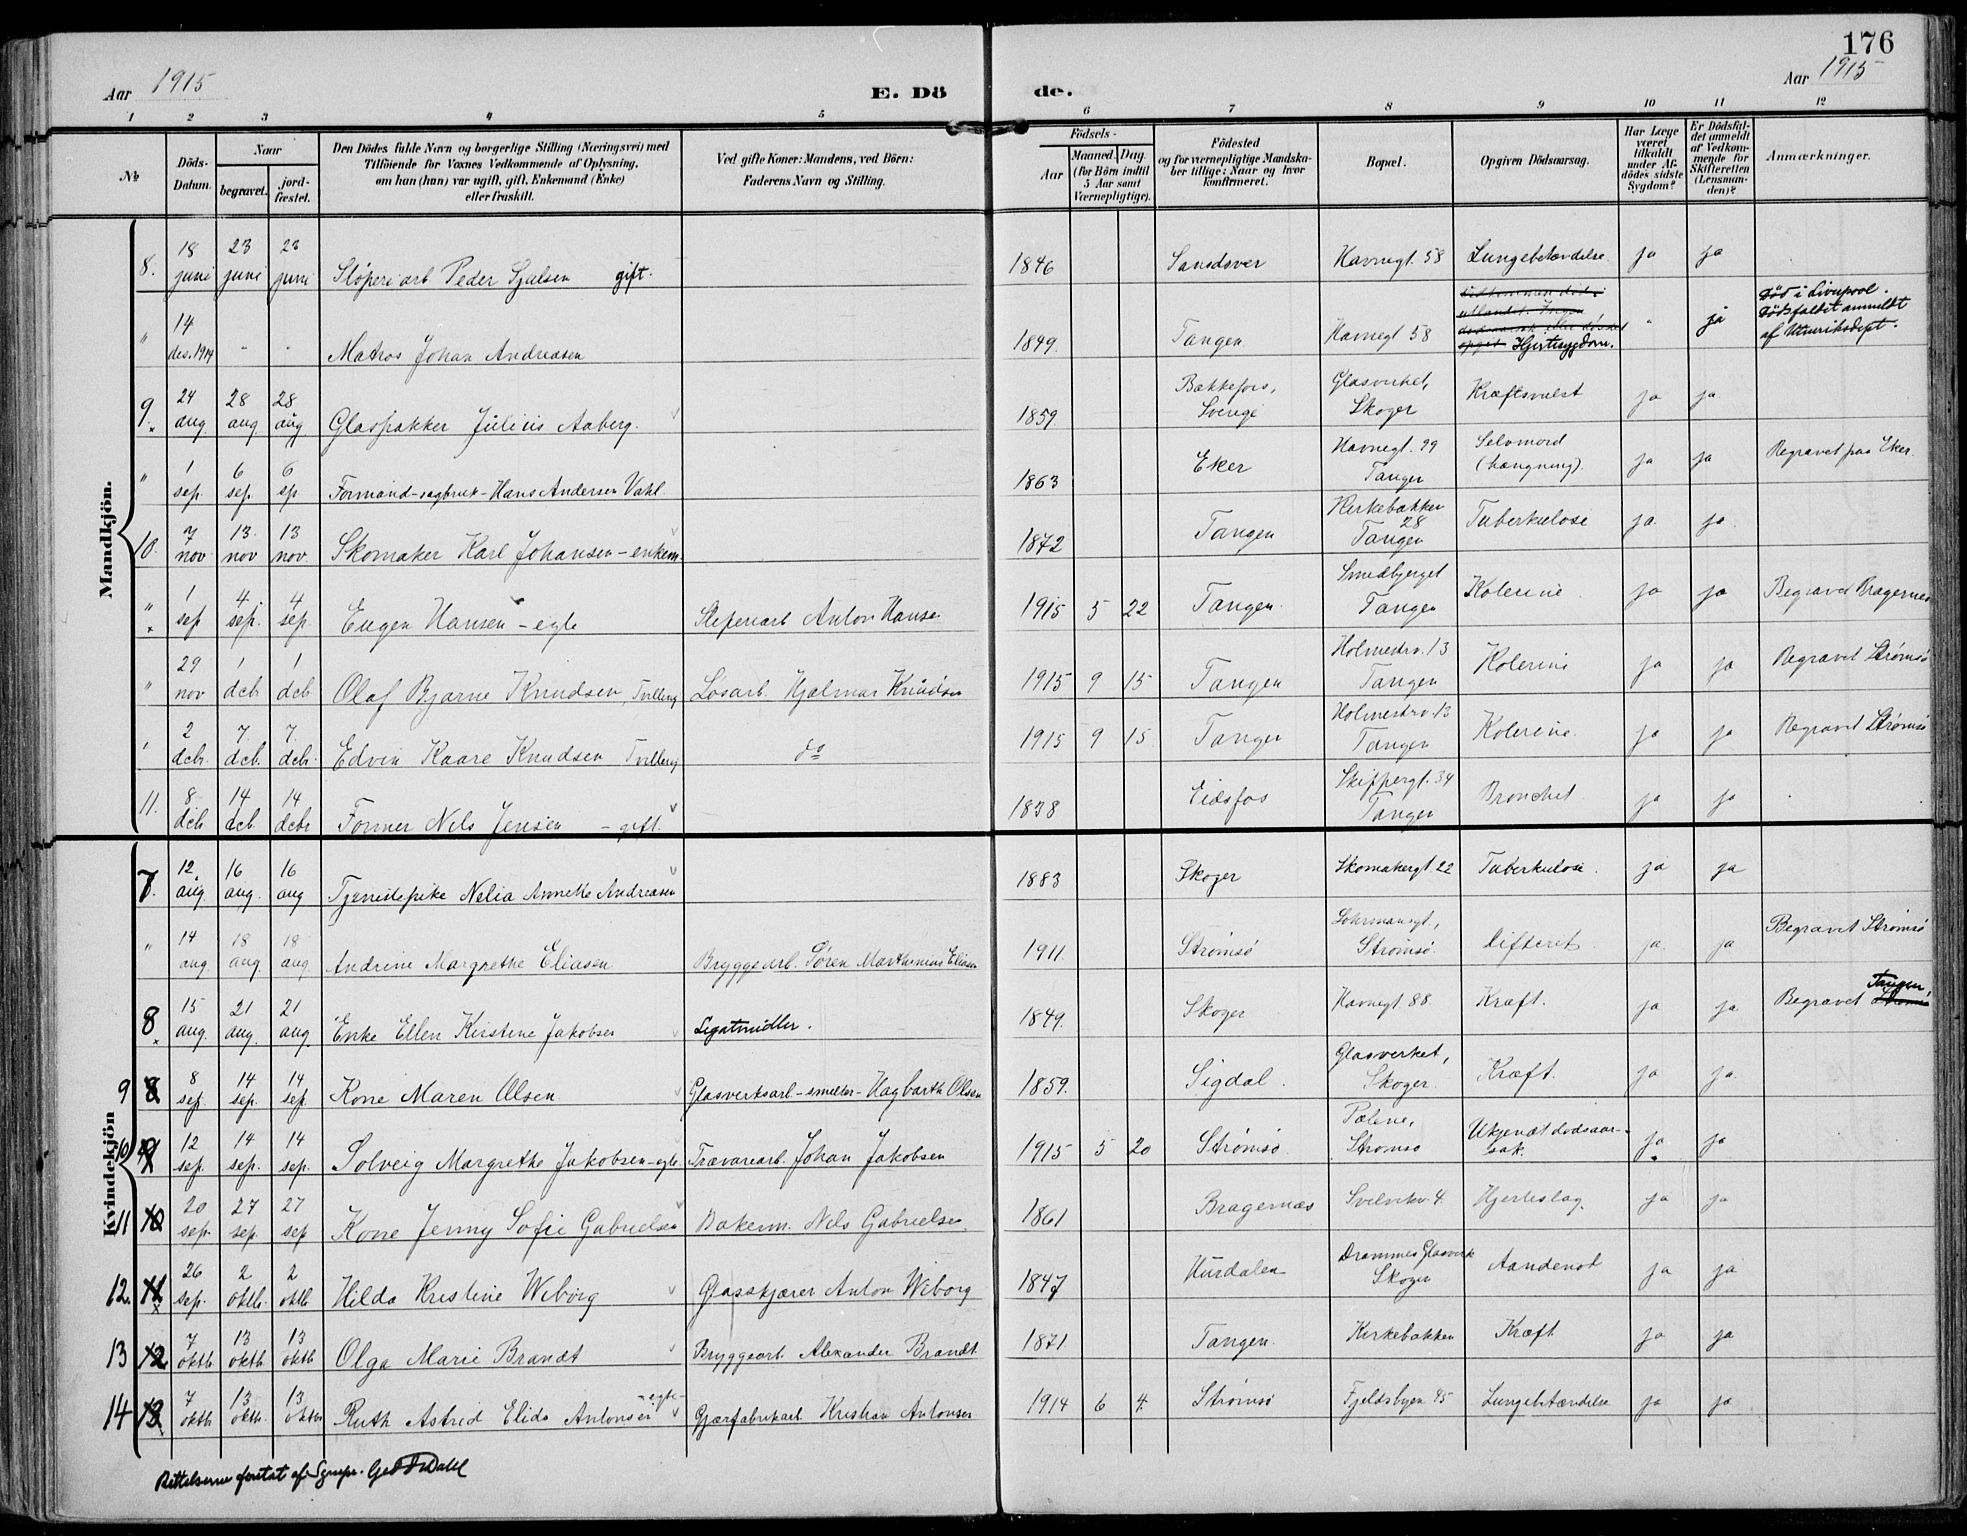 176
Aar 1915
E. Dö
de.
Aar 1915
1 2 3 4 5 6 7 8 9 10 11 12
№
Döds-Datum.
Naar
begravet.
jord-fæstet.
Den Dödes fulde Navn og borgerlige Stilling (Næringsvei) med
Tilföiende for Voxnes Vedkommende af Oplysning,
om han (hun) var ugift, gift, Enkemand (Enke)
eller fraskilt.
Ved gifte Koner: Mandens, ved Börn:
Faderens Navn og Stilling.
Födsels-
Aar
Maaned. Dag.
(for Börn indtil
5 Aar samt
Værnepligtige).
Födested
og for værnepligtige Mandska-
ber tillige: Naar og hvor
konfirmeret.
Bopæl.
Opgiven Dödsaarsag.
Har Læge
været
tilkaldt
under Af-
dödes sidste
Sygdom?
Er Dödsfal-
det anmeldt
af Vedkom-
mende for
Skifteretten
(Lensman-
den)?
Anmærkninger.
Mandkjön.
8. 18 juni 23 juni 23 juni Støperiarb. Peder Gjulsen gift. 1846 Sandsver Havnegt. 58 Lungebetændelse ja ja
" 14 des. 1914 " " Matros Johan Andreasen 1849. Tangen Havnegt 58 Hjertesygdom. " ja Død i Liverpool. Dødsfaldet anmeldt af Utenriksdept.
9. 24 aug. 28 aug 28 aug Glaspakker Julius Aaberg. 1859 Bækkefors, Sverige Glasverket, Skoger Kræftsvulst ja ja
" 1 sep. 6 sep. 6 sep Formand-sagbruk-Hans Andersen Vahl 1863 Eker Havnegt. 99 Tangen Selvmord (hængning). ja ja Begravet paa Eker.
10. 7 nov 13. nov 13 nov. Skomaker Karl Johansen - enkem. 1872 Tangen Kirkebakken 28 Tangen Tuberkulose ja ja.
" 1 sep 4 sep. 4 sep. Eugen Hansen - egte Støperiarb Anton Hansen 1915 5 22 Tangen. Smedbjerget Tangen Kolerine ja ja Begravet Bragernes
" 29 nov 1 dcb. 1 dcb Olaf Bjarne Knudsen, Tvilling Løsarb. Hjalmar Knudsen 1915 9 15 Tangen Holmestrv. 13 Tangen Kolerine ja ja Begravet Strømsø
" 2 dcbr. 7. dcb. 7. dcbr. Edvin Kaare Knudsen Tvilling do 1915 9 15 Tangen Holmestrv. 13 Tangen Kolerine. ja ja Begravet Strømsø
11. 8 dcb. 14 dcb. 14 dcbr Former Nils Jensen - gift. 1838 Eidsfos Skippergt. 34 Tangen Bronchit. ja ja
Kvindekjön
7. 12. aug. 16 aug. 16 aug Tjenestepike Nelia Annette Andreasen 1883 Skoger Skomakergt 22 Tuberkulose. ja ja
" 14 aug. 18 aug. 18 aug. Andrine Margrethe Eliasen Bryggearb. Søren Marthinius Eliasen 1911. Strømsø Strømsø. Difterit. ja. ja Begravet Strømsø
8 15 aug. 21 aug. 21 aug. Enke Ellen Kirstine Jakobsen Legatmidler. 1849. Skoger Havnegt 88. Kræft. ja ja. Begravet Tangen, Strømsø
9 8 8 sep. 14 sep. 14 sep Kone Maren Olsen Glasverksarb - smelter - Hagbarth Olsen 1859. Sigdal. Glasverket, Skoger Kræft. ja ja.
10 9 12 sep. 14 sep. 14 sep. Solveig Margrethe Jakobsen - egte Trævarearb. Johan Jakobsen 1915 5 20 Strømsø Pælene, Strømsø Ukjendt dødsaar-sak. ja ja
11 10 20 sep. 27 sep. 27 sep Kone Jenny Sofie Gabrielsen Bakerm. Nils Gabrielsen. 1861 Bragernæs Svelvikv. 4. Hjerteslag ja ja
12. 11 26 sep. 2 oktb. 2 oktb Hilda Kristine Wiborg Glasskjærer Anton Wiborg 1847 Hurdalen Drammens Glasverk Skoger Aandenød ja ja
13 12 7 oktb. 13 oktb. 13 oktb Olga Marie Brandt Bryggearb. Alexander Brandt. 1871. Tangen. Kirkebakken Kræft ja ja
14 13 7 oktb 13 oktb. 13 oktbr Ruth Astrid Elida Antonsen - egte - Gjærfabrikarb Kristian Antonsen 1914 6 4. Strømsø Fjeldsbyen 45 Lungebetændelse ja ja
Rettelserne foretat af Sgnepr.